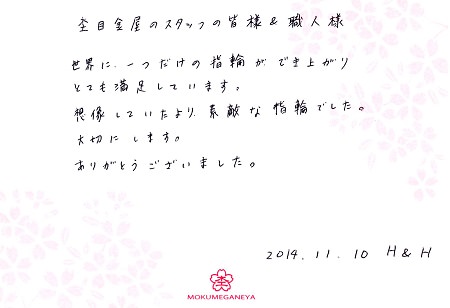 杢目金屋のスタッフの皆様&職人様
世界に一つだけの指輪ができ上がり
とても満足しています。
想像していたより素敵な指輪でした。
大切にします。
ありがとうございました。
2014.11.10 H&H
MOKUMEGANEYA